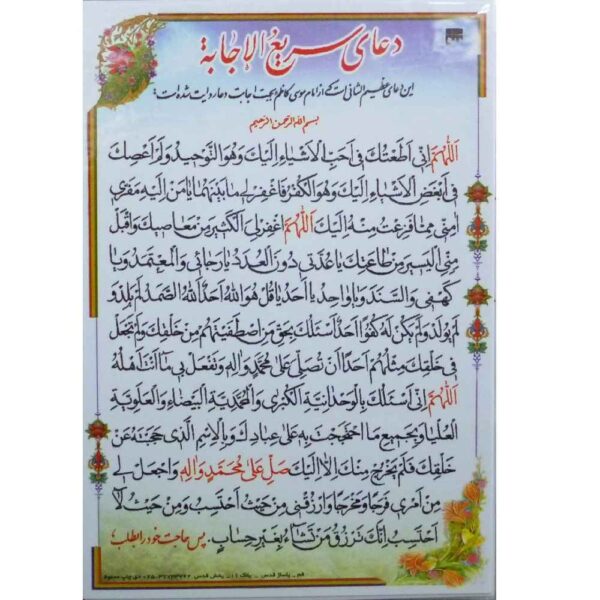 دعای سریع الإجابة
این دعای عظیم الشانی است که از امام موسی کاظم بجهت اجابت دعا روایت شده است:
بسم الله الرحمن الرحیم
اَللّٰهُمَّ اِنّی اَطَعْتُكَ فی اَحَبِّ الْاَشْیاءِ اِلَیْكَ وَهُوَ التَّوْحیدُ وَلَمْ اَعْصِكَ
فی اَبْغَضِ الْاَشْیاءِ اِلَیْكَ وَهُوَ الْكُفْرُ فَاغْفِرْ لی ما بَیْنَهُما یا مَنْ اِلَیْهِ مَفَرّی
امِنّی مِمّا فَزِعْتُ مِنْهُ اِلَیْكَ اَللّٰهُمَّ اغْفِرْ لِیَ الْكَثیرَ مِنْ مَعاصیكَ وَاقْبَلْ
مِنِّی الْیَسیرَ مِنْ طاعَتِكَ یا عُدَّتی دُونَ الْعُدَدِ یا رَجائی وَالْمُعْتَمَدُ وَیا
كَهْفی وَالسَّنَدَ وَیا واحِدُ یا اَحَدُ یا قُلْ هُوَ اللهُ اَحَدٌ اَللهُ الصَّمَدُ لَمْ یَلِدْ وَ
لَمْ یُولَدْ وَلَمْ یَكُنْ لَهُ كُفُوًا اَحَدٌ اَسْئَلُكَ بِحَقِّ مَنِ اصْطَفَیْتَهُمْ مِنْ خَلْقِكَ وَلَمْ تَجْعَلْ
فی خَلْقِكَ مِثْلَهُمْ اَحَداً اَنْ تُصَلِّیَ عَلی مُحَمَّدٍ وَالِهِ وَتَفْعَلَ بی ما اَنْتَ اَهْلُهُ
اَللّٰهُمَّ اِنّی اَسْئَلُكَ بِالْوَحْدانِیَّةِ الْكُبْری وَالْمُحَمَّدِیَّةِ الْبَیْضاءِ وَالْعَلَوِیَّةِ
الْعُلْیا وَبِجَمیعِ مَا احْتَجَجْتَ بِهِ عَلی عِبادِكَ وَبِالْاِسْمِ الَّذی حَجَبْتَهُ عَنْ
خَلْقِكَ فَلَمْ یَخْرُجْ مِنْكَ اِلّا اِلَیْكَ صَلِّ عَلی مُحَمَّدٍ وَالِهِ وَاجْعَلْ لی
مِنْ اَمْری فَرَجًا وَمَخْرَجًا وَارْزُقْنی مِنْ حَیْثُ اَحْتَسِبُ وَمِنْ حَیْثُ لا
اَحْتَسِبُ اِنَّكَ تَرْزُقُ مَنْ تَشاءُ بِغَیْرِ حِسابٍ. پس حاجت خود را بطلب
قم - پاساژ قدس - پلاک ۱۱۰ - پخش قدس